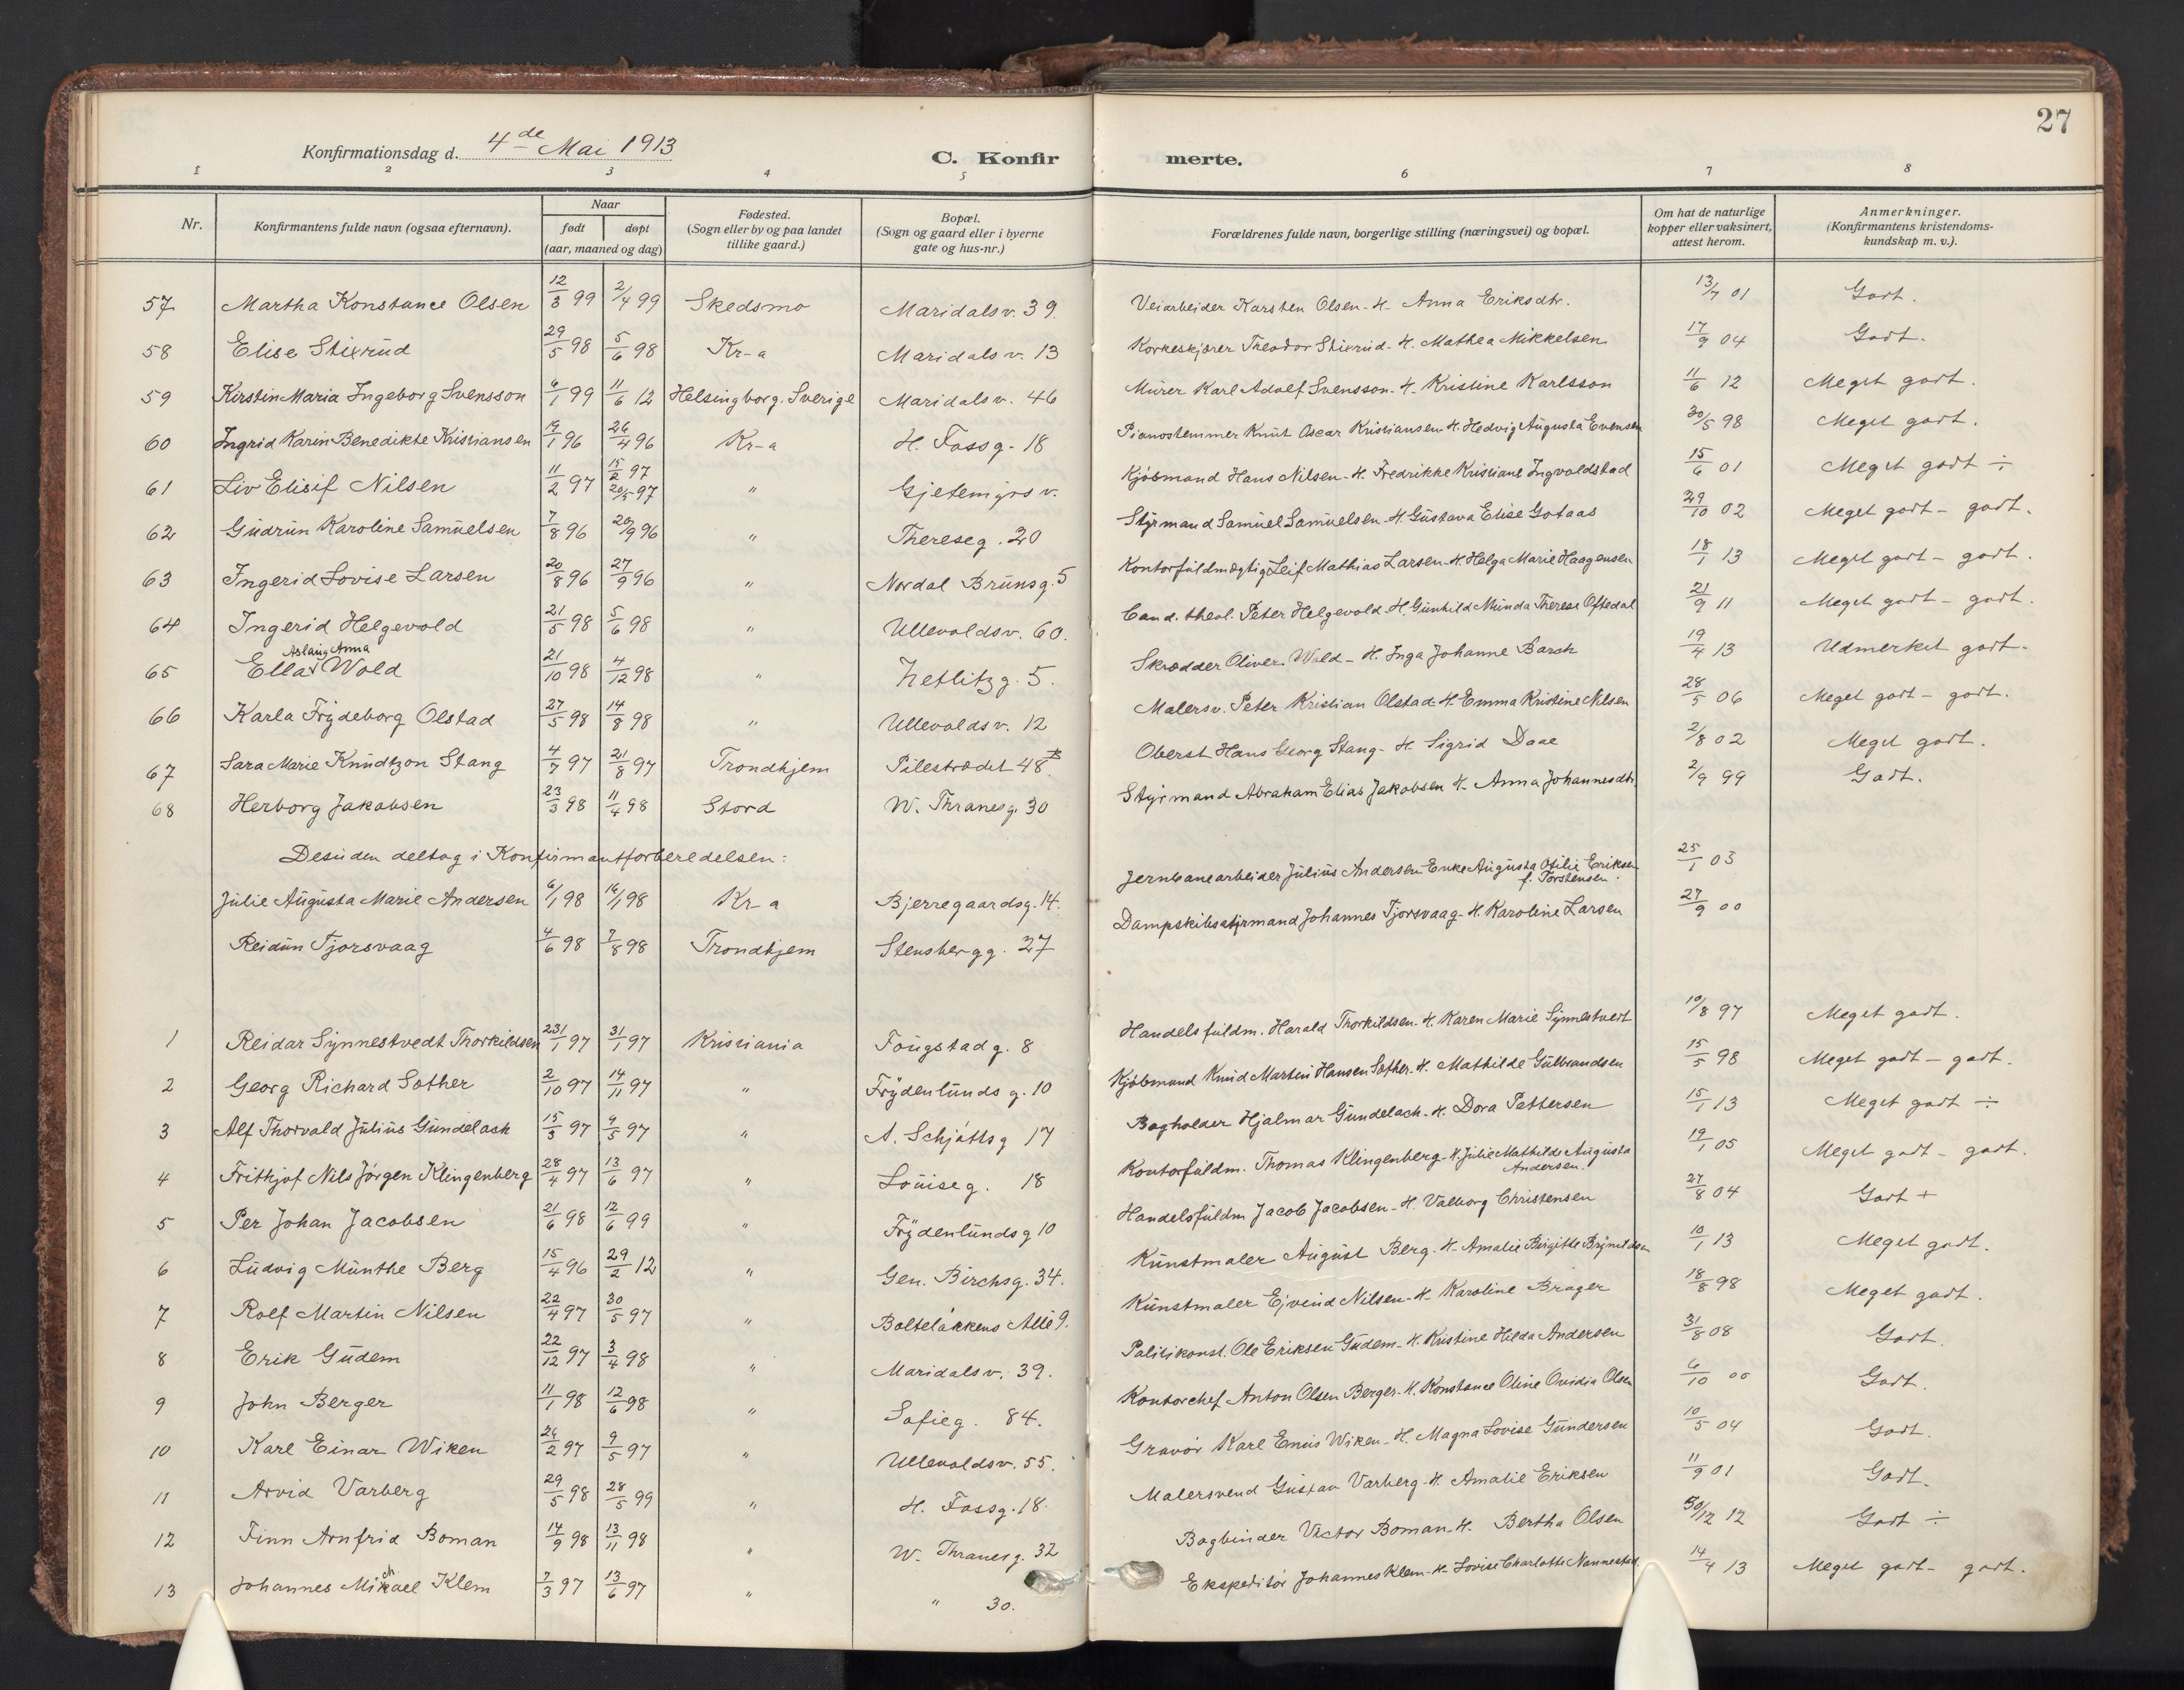 27
Konfirmationsdag d. 4de Mai 1913
C. Konfir merte.
1 2 3 4 5 6 7 8
Nr. Konfirmantens fulde navn (ogsaa efternavn). Naar født døpt (aar, maaned og dag) Fødested. (Sogn eller by og paa landet tillike gaard.) Bopæl. (Sogn og gaard eller i byerne gate og hus-nr.) Forældrenes fulde navn, borgerlige stilling (næringsvei) og bopæl. Om hat de naturlige kopper eller vaksinert, attest herom. Anmerkninger. (Konfirmantens kristendoms-kundskap m. v.).
57 Martha Konstance Olsen 12/3 99 2/4 99 Skedsmo Maridalsv. 39. Veiarbeider Karsten Olsen - H. Anna Eriksdtr. 13/7 01 Godt.
58 Elise Stixrud 29/5 98 5/6 98 Kr-a Maridalsv. 13 Korkeskjærer Theodor Stixrud - H. Mathea Mikkelsen 17/9 04 Godt.
59 Kirstin Maria Ingeborg Svensson 6/1 99 11/6 12 Helsingborg. Sverige Maridalsv. 46 Murer Karl Adolf Svensson - H. Kristine Karlsson 11/6 12 Meget godt.
60 Ingrid Karin Benedikte Kristiansen 19/1 96 26/4 96 Kr-a H. Fossg. 18 Pianostemmer Knut Oscar Kristiansen - H. Hedvig Augusta Evensen 30/5 98 Meget godt.
61 Liv Elisif Nilsen 11/2 97 15/2 97 20/5 97 " Gjetemyrsv. Kjøbmand Hans Nilsen - H. Fredrikke Kristiane Ingvoldstad 15/6 01 Meget godt ÷
62 Gudrun Karoline Samuelsen 7/8 96 20/9 96 " Thereseg. 20 Styrmand Samuel Samuelsen - H. Gustava Elise Gotaas 29/10 02 Meget godt - godt.
63 Ingerid Lovise Larsen 20/8 96 27/9 96 " Nordal Brunsg. 5 Kontorfuldmægtig Leif Mathias Larsen - H. Helga Marie Haagensen 18/1 13 Meget godt - godt.
64 Ingerid Helgevold 21/5 98 5/6 98 " Ullevoldsv. 60. Cand. theol. Peter Helgevold - H. Gunhild Munda Therese Oftedal 21/9 11 Meget godt - godt.
65 Ella Aslaug Anna Wold 21/10 98 4/12 98 " Zetlitzg. 5. Skrædder Oliver Wold - H. Inga Johanne Barch 19/4 13 Udmerket godt.
66 Karla Frydeborg Olstad 27/5 98 14/8 98 " Ullevoldsv. 12 Malersv. Peter Kristian Olstad - H. Emma Kristine Nilsen 28/5 06 Meget godt - godt.
67 Sara Marie Knudtzon Stang 4/7 97 21/8 97 Trondhjem Pilestrædet 48 B. Oberst Hans Georg Stang - H. Sigrid Daae 2/8 02 Meget godt.
68 Herborg Jakobsen 23/3 98 11/4 98 Stord W. Thranesg. 30 Styrmand Abraham Elias Jakobsen H. Anna Johannesdtr. 2/9 99 Godt.
Desuden deltog i Konfirmantforberedelsen:
Julie Augusta Marie Andersen 6/1 98 16/1 98 Kr-a Bjerregaardsg. 14. Jernbanearbeider Julius Andersen - Enke Augusta Otilie Eriksen f. Torstensen. 25/1 03
Reidun Tjorsvaag 4/6 98 7/8 98 Trondhjem Stensbergg. 27 Dampskibsstyrmand Johannes Tjorsvaag - H. Karoline Larsen 27/9 00
1 Reidar Synnestvedt Thorkildsen 231/1 97 31/1 97 Kristiania Fougstadg. 8 Handelsfuldm. Harald Thorkildsen - H. Karen Marie Synnestvedt 10/8 97 Meget godt.
2 Georg Richard Sæther 2/10 97 14/11 97 " Frydenlundsg. 10 Kjøbmand Knud Martin Hansen Sæther - H. Mathilde Gulbrandsen 15/5 98 Meget godt - godt.
3 Alf Thorvald Julius Gundelach 15/3 97 9/5 97 " A. Schjøttsg 17 Bogholder Hjalmar Gundelach - H. Dora Pettersen 15/1 13 Meget godt ÷
4 Frithjof Nils Jørgen Klingenberg 28/4 97 13/6 97 " Louiseg. 18 Kontorfuldm. Thomas Klingenberg - H. Julie Mathilde Augusta Andersen. 19/1 05 Meget godt - godt.
5 Per Johan Jacobsen 21/6 98 12/6 99 " Frydenlundsg 10 Handelsfuldm Jacob Jacobsen - H. Valborg Christensen 27/8 04 Godt +
6 Ludvig Munthe Berg 15/4 96 29/2 12 " Gen. Birchsg. 34. Kunstmaler August Berg - H. Amalie Birgitte Brynildsen 10/1 13 Meget godt.
7 Rolf Martin Nilsen 22/4 97 30/5 97 " Bolteløkkens Allé 9. Kunstmaler Ejvind Nilsen - H. Karoline Brager 18/8 98 Meget godt.
8 Erik Gudem 22/12 97 3/4 98 " Maridalsv. 39. Politikonst. Ole Eriksen Gudem - H. Kristine Hilda Andersen 31/8 08 Godt.
9 John Berger 11/1 98 12/6 98 " Sofieg. 84. Kontorchef Anton Olsen Berger - H. Konstance Oline Ovidia Olsen 6/10 00 Godt.
10 Karl Einar Wiken 24/2 97 9/5 97 " Ullevoldsv. 55. Gravør Karl Enius Wiken - H. Magna Lovise Gundersen 10/5 04 Godt.
11 Arvid Varberg 29/5 98 28/5 99 " H. Fossg. 18. Malersvend Gustav Varberg - H. Amalie Eriksen 11/9 01 Godt.
12 Finn Arnfrid Boman 14/9 98 13/11 98 " W. Thranesg. 32 Bogbinder Victor Boman - H. Bertha Olsen 30/12 12 Godt ÷
13 Johannes Michael Klem 7/3 97 13/6 97 " " 30. Ekspeditør Johannes Klem - H. Lovise Charlotte Nannestad 14/4 13 Meget godt - godt.